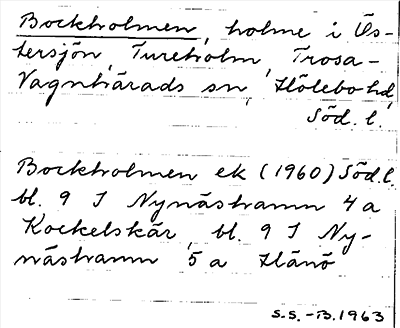 Bockholmen, holme i Ös-
tersjön, Tureholm, Trosa-
Vagnhärads sn, Hölebo hd,
Söd. l.
Bockholmen ek (1960) Söd. l.
bl. 9 I Nynäshamn 4 a
Kockelskär, bl. 9 I Ny-
näshamn 5 a Hånö
S.S. -B. 1963